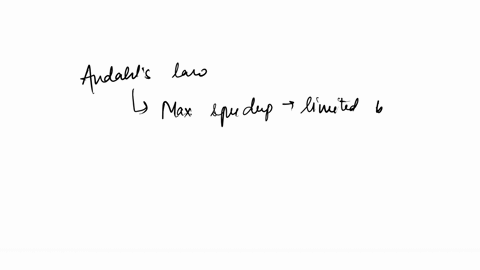 Amdahl's law
↳ Max speedup → limited b